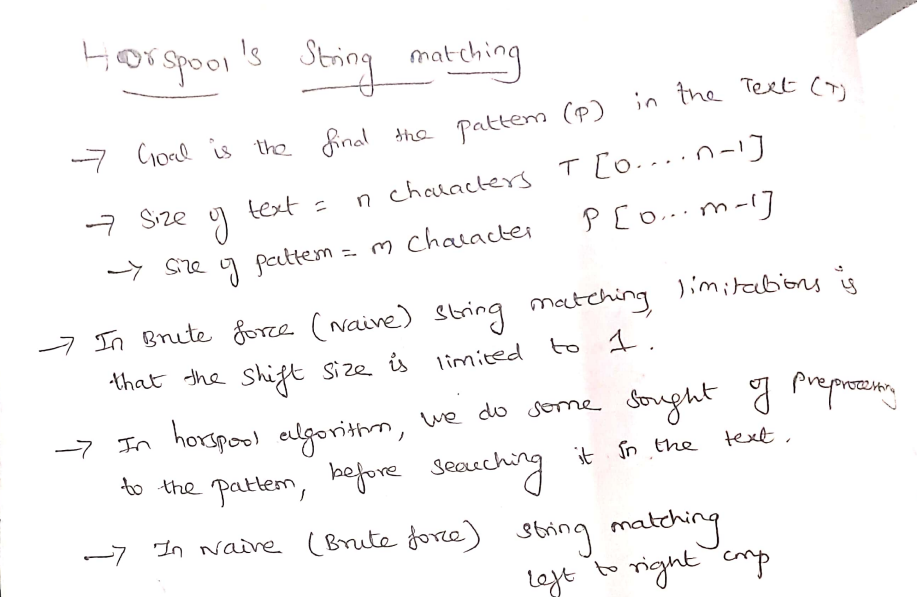 Horspool's String matching
→ Goal is the final the pattern (P) in the Text (T)
→ Size of text = n characters T [0....n-1]
→ size of pattern = m character P [0...m-1]
→ In Brute force (Naive) string matching, limitations is
that the shift size is limited to 1.
→ In horspool algorithm, we do some sought of preprocessing
to the pattern, before searching it in the text.
→ In Naive (Brute force) string matching
left to right cmp